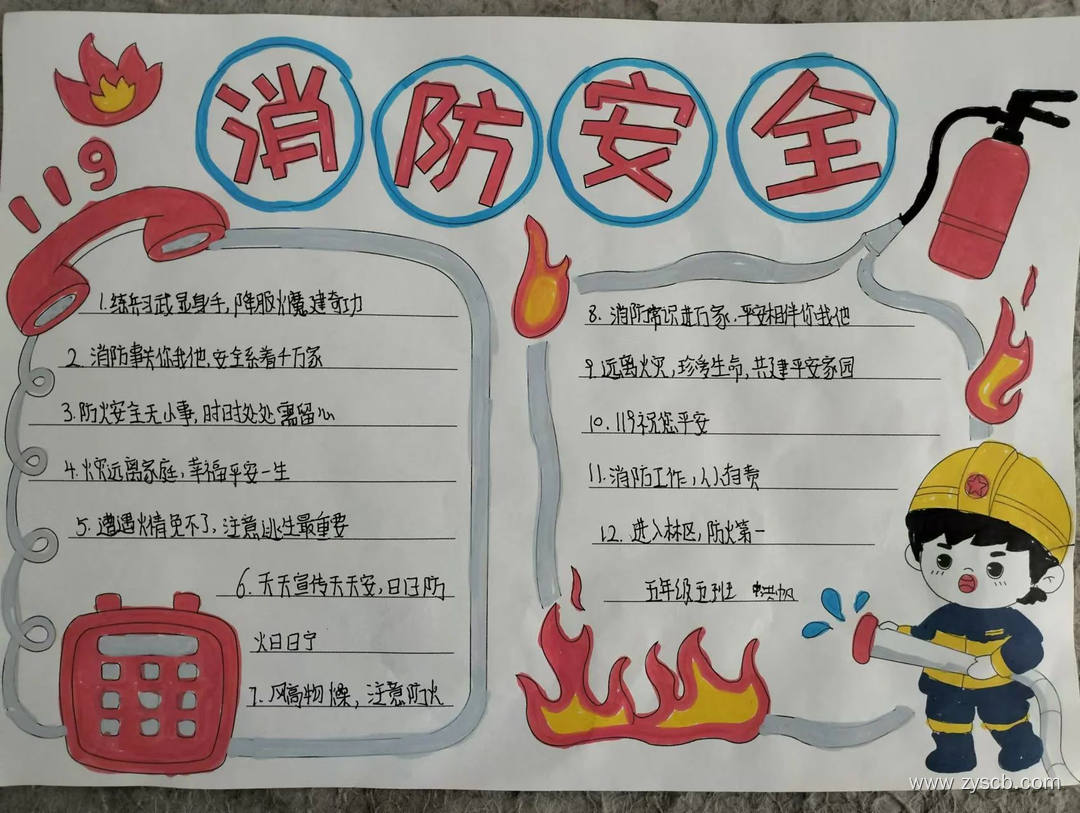 消防安全
119
1.练兵习武显身手,降服火魔建奇功
2.消防事关你我他,安全系着千万家
3.防火安全无小事,时时处处需留心
4.火灾远离家庭,幸福平安一生
5.遭遇火情免不了,注意逃生最重要
6.天天宣传天天安,日日防
火日日宁
7.风高物燥,注意防火
8.消防常识进万家.平安相伴你我他
9.远离火灾,珍爱生命,共建平安家园
10.119祝您平安
11.消防工作,人人有责
12.进入林区,防火第一
五年级五班
www.zyscb.com